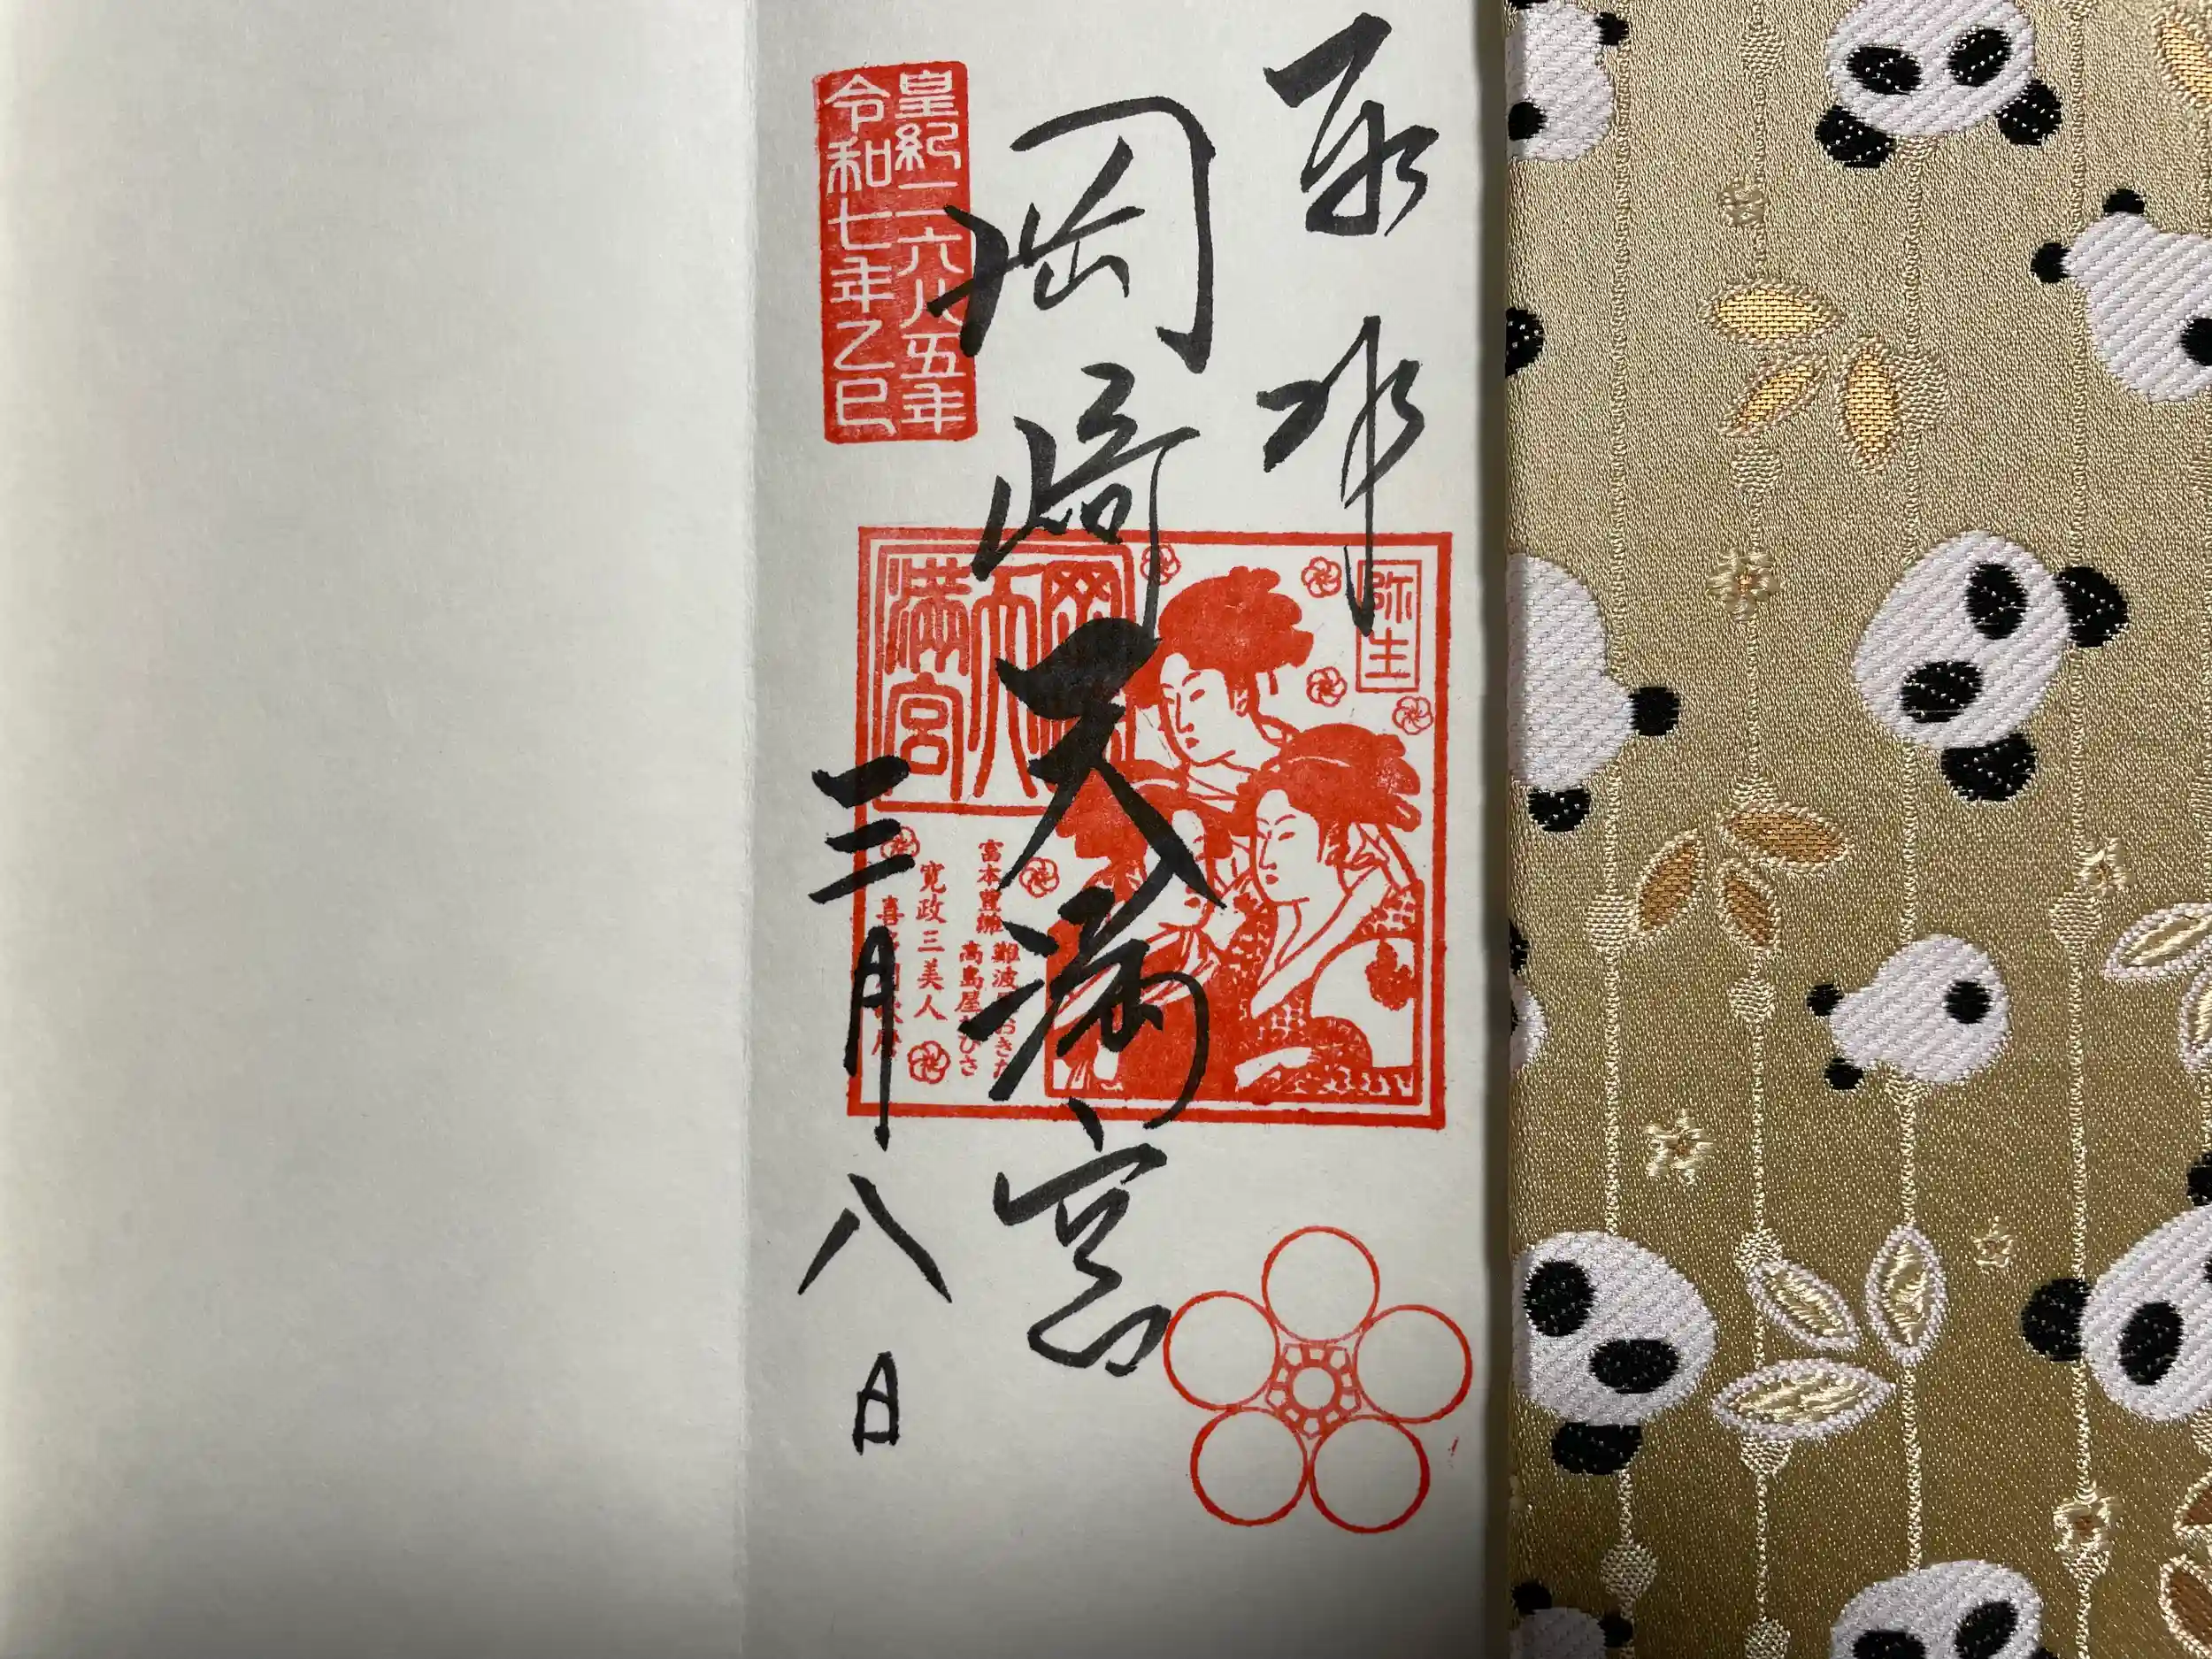 奉拝
弥生
岡崎天満宮
岡崎天満宮
皇紀二六八五年
令和七年乙巳
富本豊雛
難波屋おきた
高島屋おひさ
寛政三美人
喜多川歌麿
三月八日